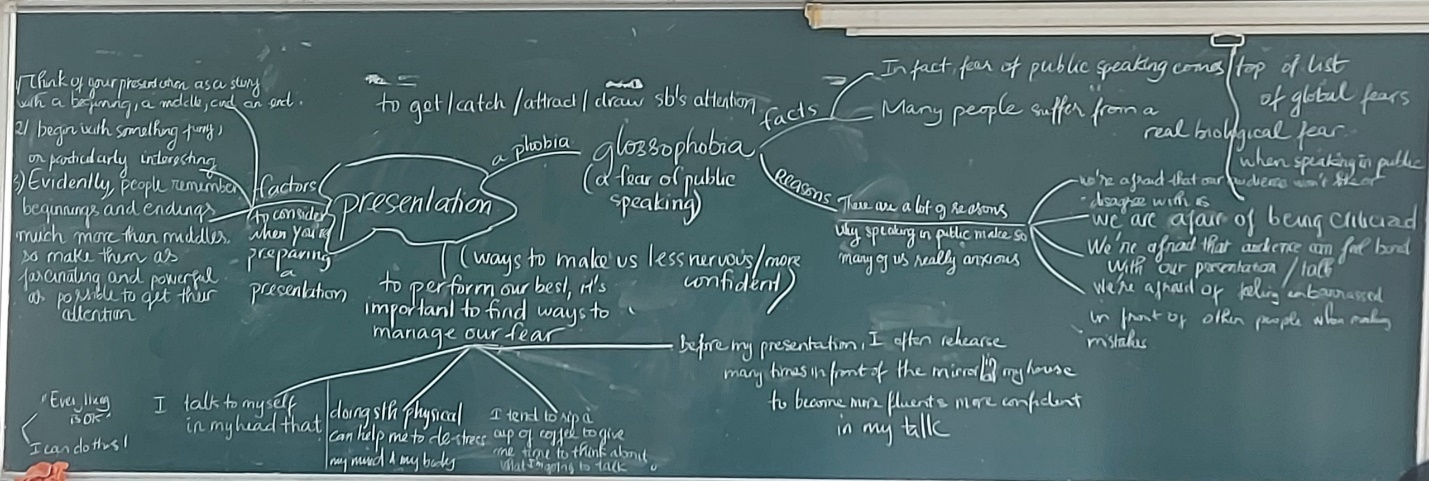 1/ Think of your presentation as a story
with a beginning, a middle, and an end.
2/ begin with something funny,
or particularly interesting
3) Evidently, people remember
beginnings and endings
much more than middles,
so make them as
fascinating and powerful
as possible to get their
attention
factors
to consider
when you're
preparing
a
presentation
presentation
to get/catch/attract/draw sb's attention
a phobia
glossophobia
(a fear of public
speaking)
facts
In fact, fear of public speaking comes top of list
of global fears
Many people suffer from a
real biological fear
when speaking in public
Reasons
There are a lot of reasons
why speaking in public make so
many of us really anxious
we're afraid that our audience won't like or
disagree with us
we are afair of being criticiad
We're afraid that audience am feel bored
with our presentation / talk
We're afraid of feeling embarrassed
in front of other people when making
mistakes
(ways to make us less nervous/more
confident)
to perform our best, it's
important to find ways to
manage our fear
before my presentation, I often rehearse
many times in front of the mirror in my house
to become more fluent & more confident
in my talk
I talk to myself
in my head that
"Everything
is OK"
I can do this!
doing sth physical
can help me to de-stress
my mind & my body
I tend to sip a
cup of coffee to give
me time to think about
what I'm going to talk